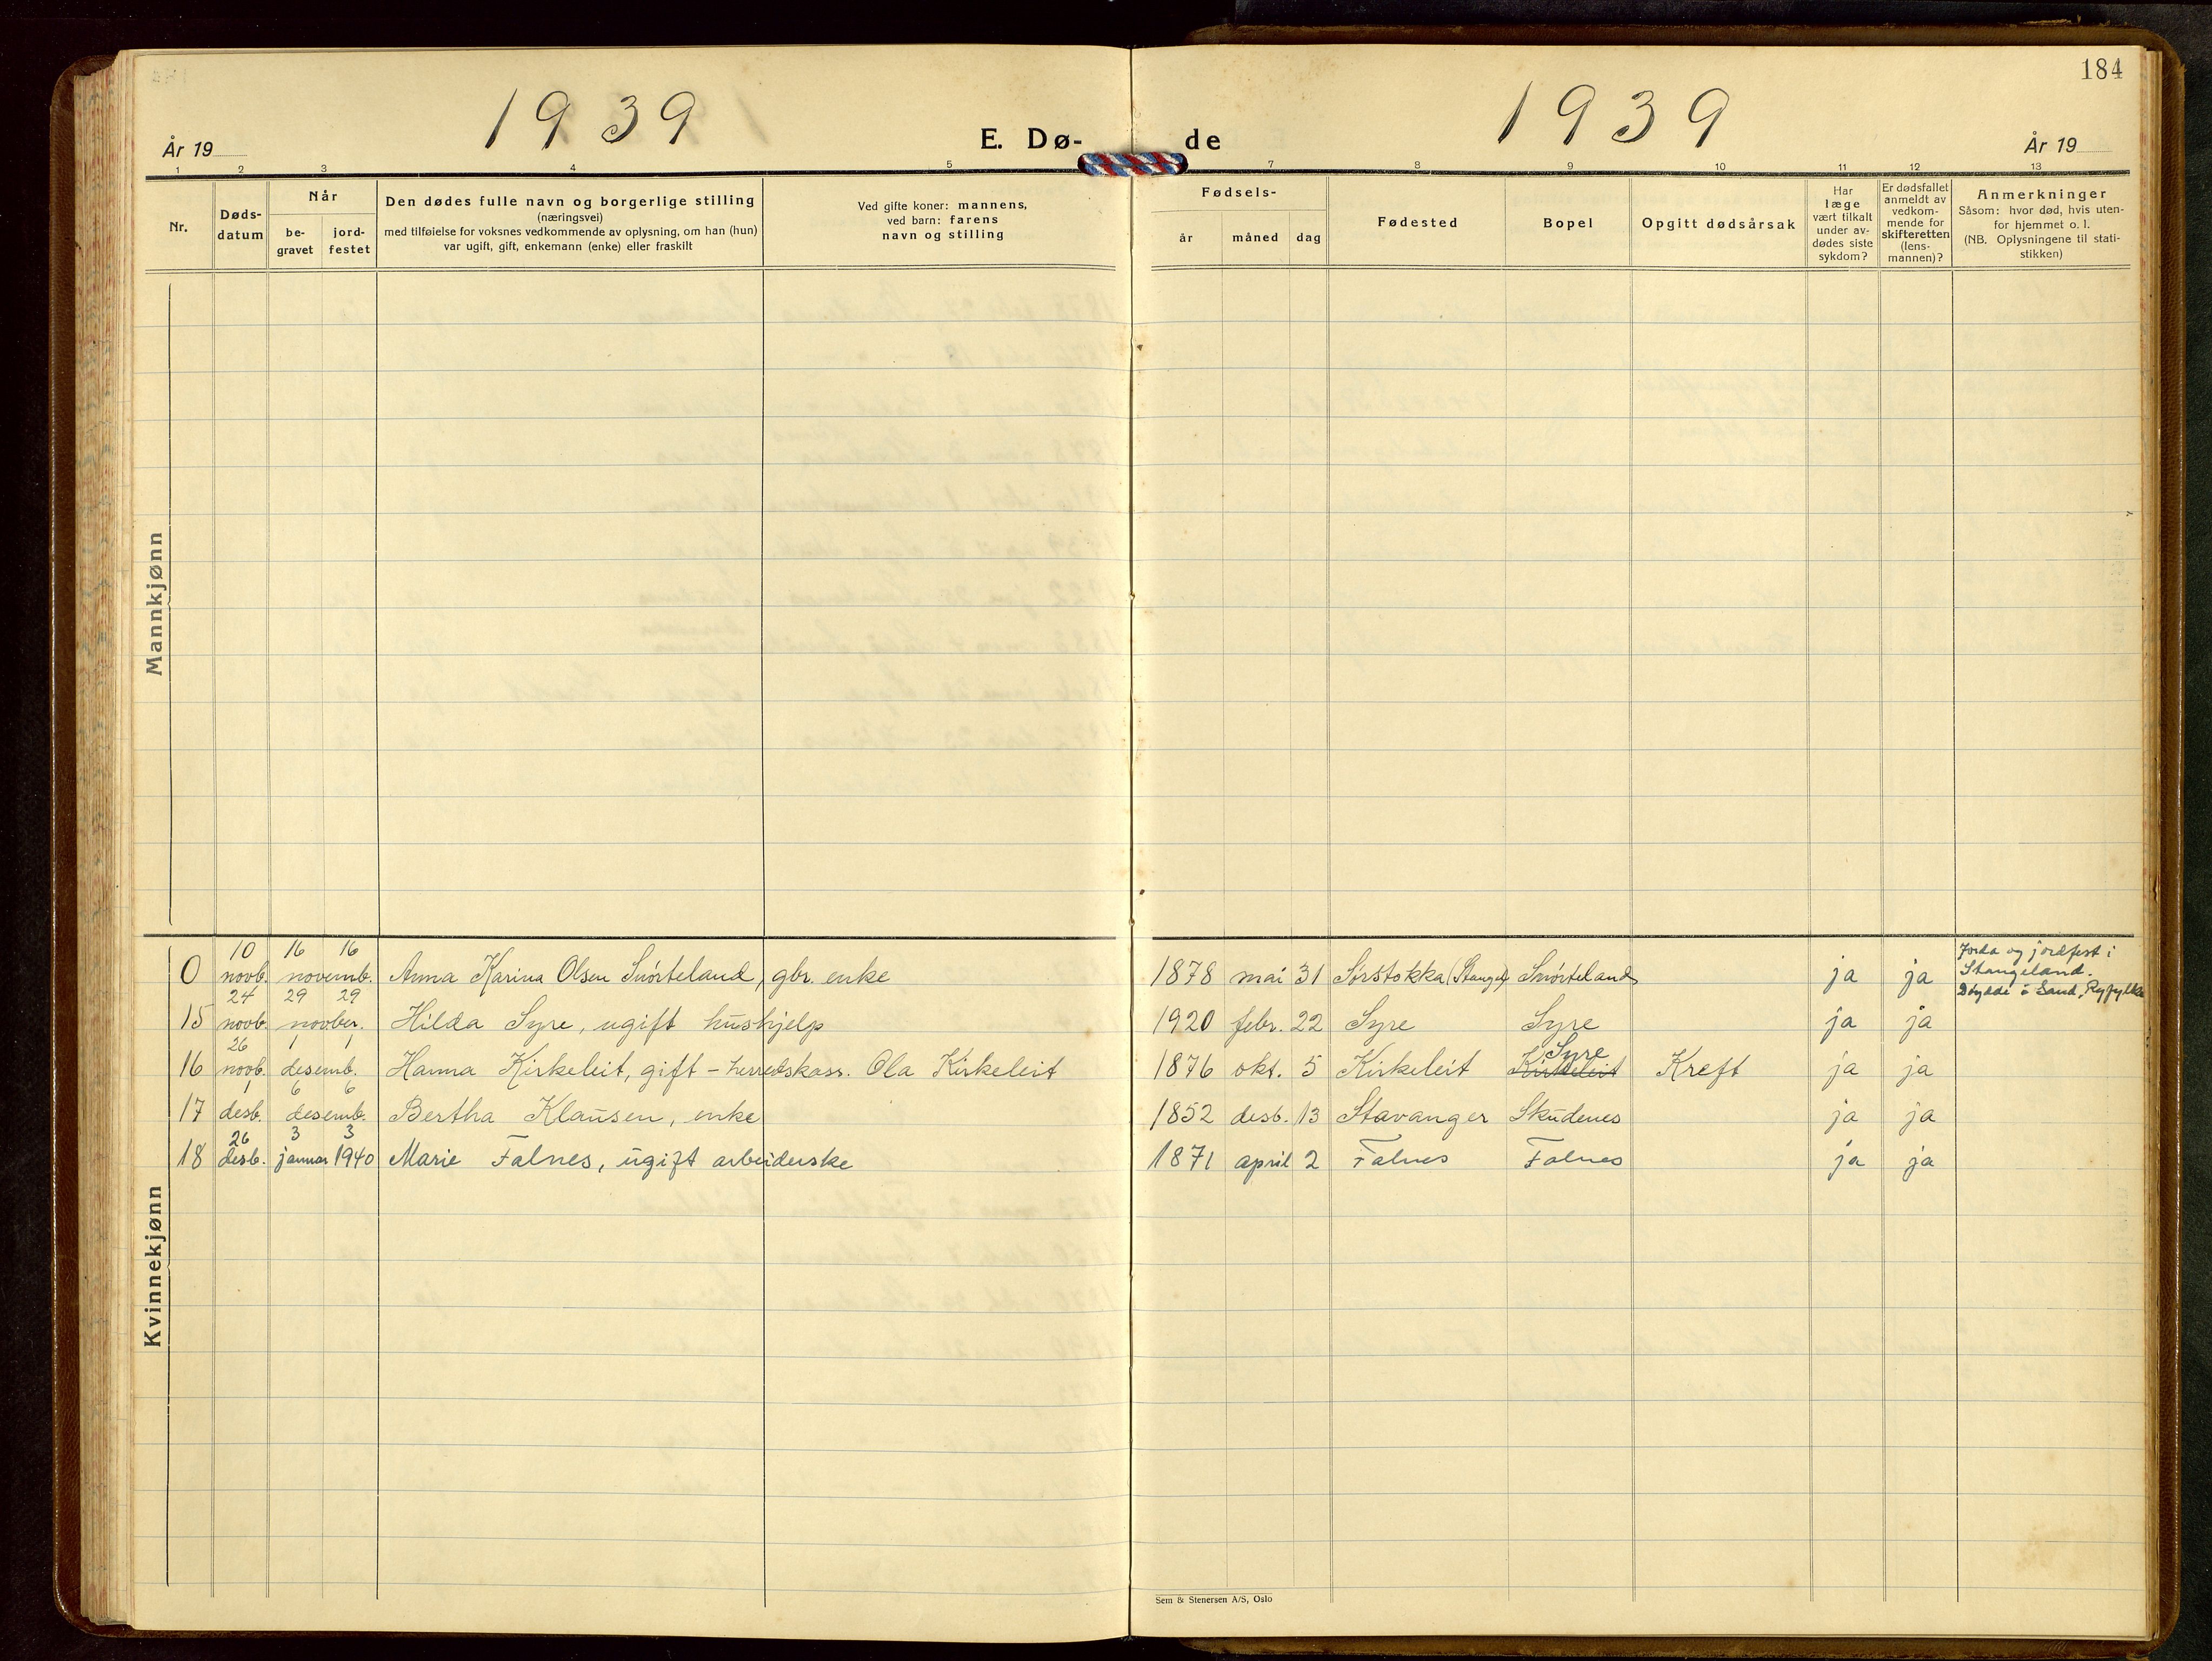 184
1939
1939
År 19
E. Dø-
de
År 19
1 2 3 4 5 7 8 9 10 11 12 13
Nr.
Døds-
datum
Når
be-
gravet
jord-
festet
Den dødes fulle navn og borgerlige stilling
(næringsvei)
med tilføielse for voksnes vedkommende av oplysning, om han (hun)
var ugift, gift, enkemann (enke) eller fraskilt
Ved gifte koner: mannens,
ved barn: farens
navn og stilling
Fødsels-
år måned dag
Fødested
Bopel
Opgitt dødsårsak
Har
læge
vært tilkalt
under av-
dødes siste
sykdom?
Er dødsfallet
anmeldt av
vedkom-
mende for
skifteretten
(lens-
mannen)?
Anmerkninger
Såsom: hvor død, hvis uten-
for hjemmet o. l.
(NB. Oplysningene til stati-
stikken)
Mannkjønn
Kvinnekjønn
10 16 16
0 novb. novemb. Anna Karina Olsen Snørteland, gbr. enke 1878 mai 31 Sørstokka (Stangel) Snørteland ja ja
Jorda og jordfest i
Stangeland.
Døydde i Sand, Ryfylke
24 29 29
15 novb. novber. Hilda Syre, ugift hushjelp 1920 febr. 22 Syre Syre ja ja
26 1 1
16 novb. desemb. Hanna Kirkeleit, gift - herredskass. Ola Kirkeleit 1876 okt. 5 Kirkeleit Kirkeleit Syre Kreft ja ja
1 6 6
17 desb. desemb. Bertha Klausen, enke 1852 desb. 13 Stavanger Skudenes ja ja
26 3 3
18 desb. januar 1940 Marie Falnes, ugift arbeiderske 1871 april 2 Falnes Falnes ja ja
Sem & Stenersen A/S, Oslo